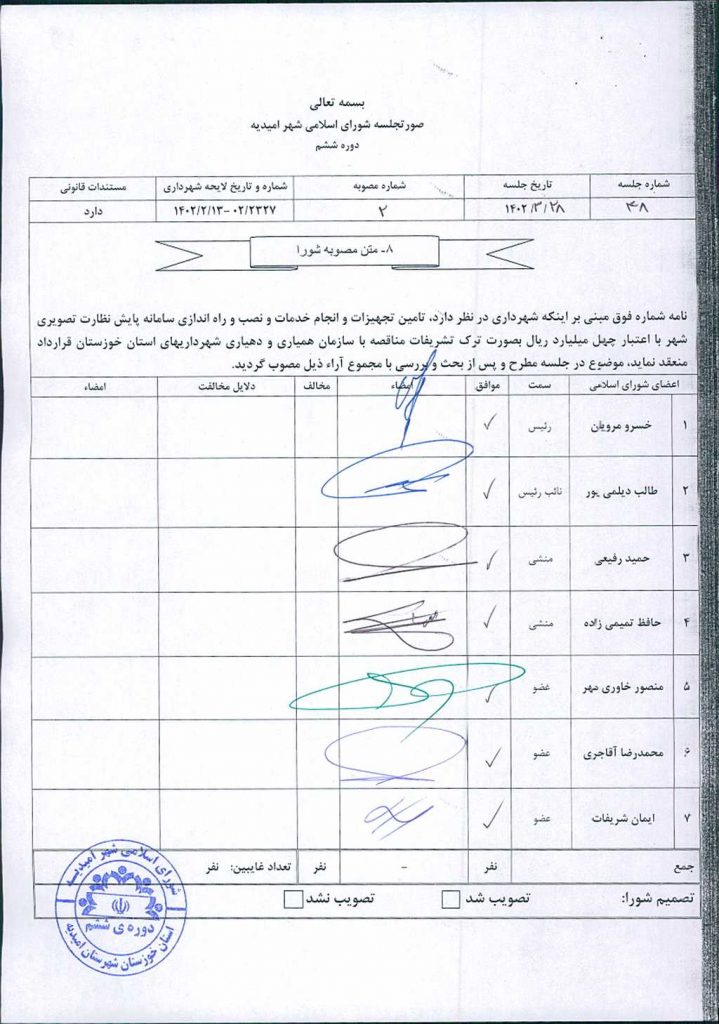 بسمه تعالی
صورتجلسه شورای اسلامی شهر امیدیه
دوره ششم
شماره جلسه تاریخ جلسه شماره مصوبه شماره و تاریخ لایحه شهرداری مستندات قانونی
۴۸ ۱۴۰۲/۳/۲۸ ۲ ۰۲/۲۳۲۷-۱۴۰۲/۲/۱۳ دارد
۸- متن مصوبه شورا
نامه شماره فوق مبنی بر اینکه شهرداری در نظر دارد، تامین تجهیزات و انجام خدمات و نصب و راه اندازی سامانه پایش نظارت تصویری
شهر با اعتبار چهل میلیارد ریال بصورت ترک تشریفات مناقصه با سازمان همیاری و دهیاری شهرداریهای استان خوزستان قرارداد
منعقد نماید، موضوع در جلسه مطرح و پس از بحث و بررسی با مجموع آراء ذیل مصوب گردید.
اعضای شورای اسلامی سمت موافق امضاء مخالف دلایل مخالفت امضاء
۱ خسرو مرویان رئیس ✓
۲ طالب دیلمی پور نائب رئیس ✓
۳ حمید رفیعی منشی ✓
۴ حافظ تمیمی زاده منشی ✓
۵ منصور خاوری مهر عضو ✓
۶ محمدرضا آقاجری عضو ✓
۷ ایمان شریفات عضو ✓
جمع نفر - نفر تعداد غایبین: نفر
تصمیم شورا: تصویب شد تصویب نشد
شورای اسلامی شهر امیدیه
دوره ی ششم
استان خوزستان شهرستان امیدیه